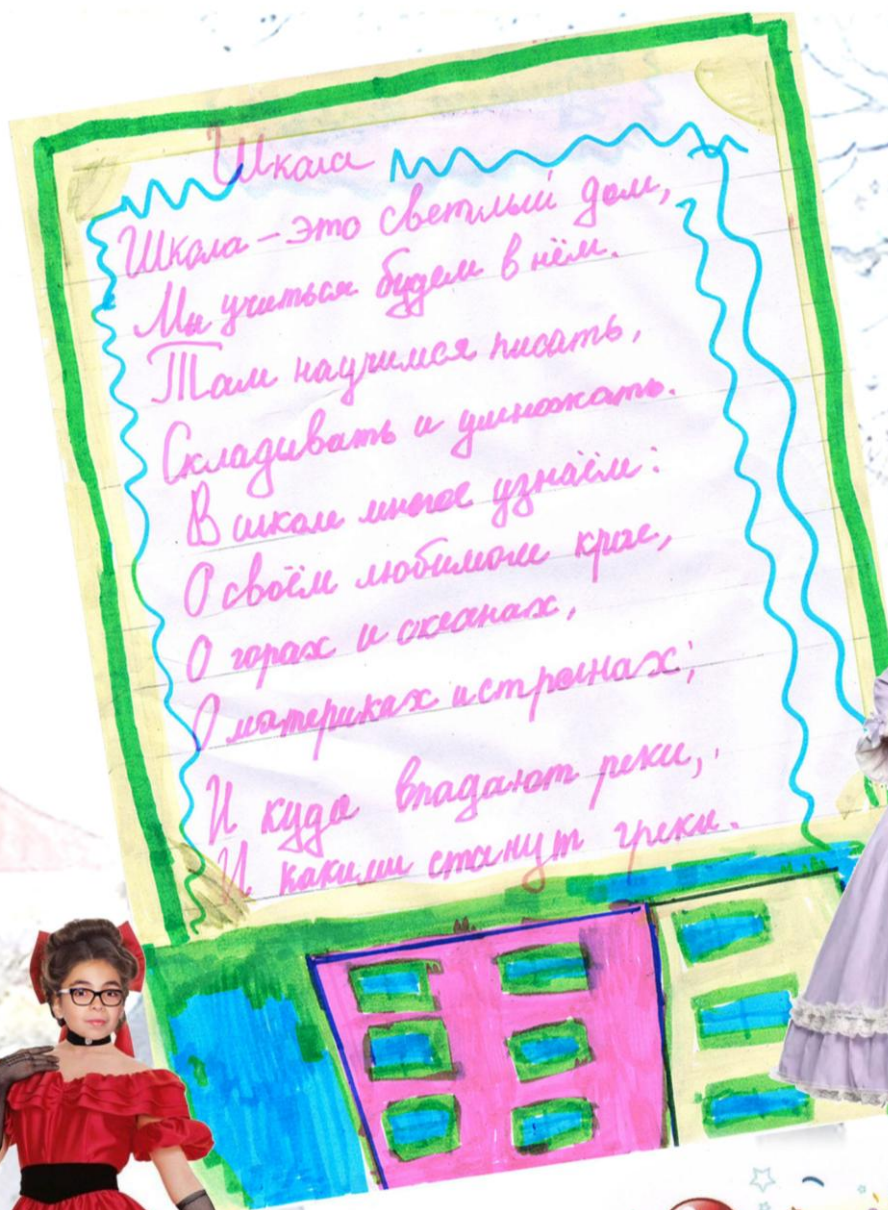 Школа
Школа – это светлый дом,
Мы учиться будем в нём.
Там научимся писать,
Складывать и умножать.
В школе многое узнаём:
О своём любимом крае,
О горах и океанах,
О материках и странах;
И куда впадают реки,
И какими станут греки.